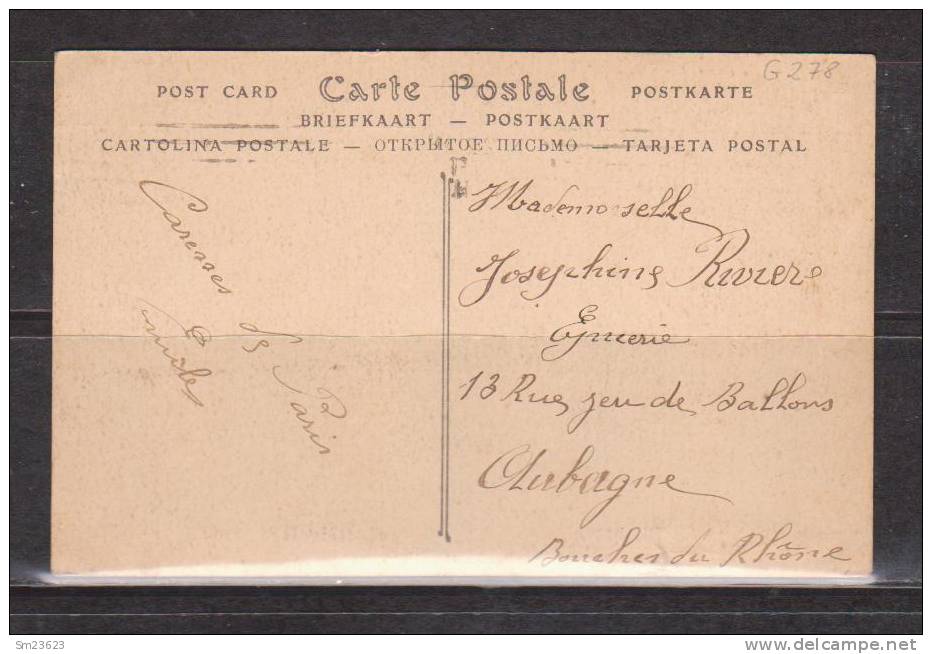 G 278
POST CARD Carte Postale POSTKARTE
BRIEFKAART — POSTKAART
CARTOLINA POSTALE — ОТКРЫТОЕ ПИСЬМО — TARJETA POSTAL
Caresses
de Paris
Mademoiselle
Josephine Riviere
Epicerie
13 Rue jeu de Ballons
Aubagne
Bouches du Rhône
Sm23623
delcampe.net